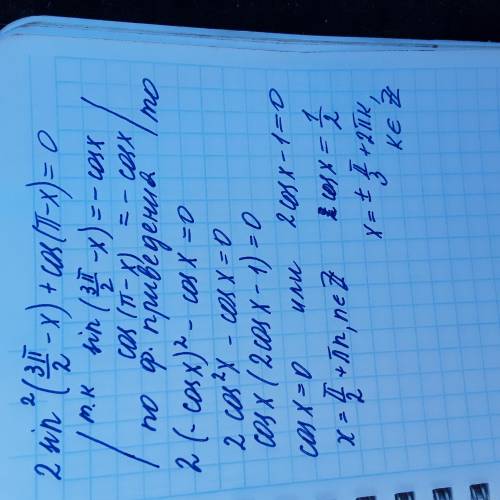 2 sin²(3π/2 - x) + cos(π - x) = 0
/ т.к sin(3π/2 - x) = - cosx
cos(π - x) = - cosx
по ф. приведения / то
2(- cosx)² - cosx = 0
2 cos²x - cosx = 0
cosx(2cosx - 1) = 0
cosx = 0 или 2cosx - 1 = 0
x = π/2 + πn, n∈Z cosx = 1/2
x = ± π/3 + 2πk,
k∈Z